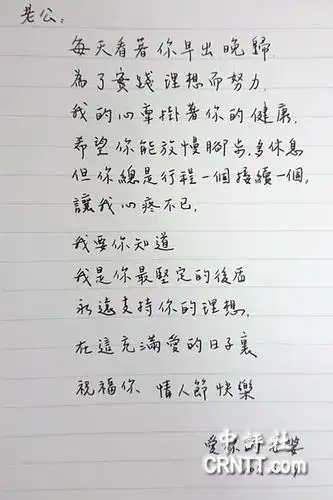 老公：
每天看著你早出晚歸
為了實踐理想而努力
我的心牽掛著你的健康，
希望你能放慢腳步，多休息
但你總是行程一個接續一個，
讓我心疼不已
我要你知道
我是你最堅定的後盾
永遠支持你的理想，
在這充滿愛的日子裏
祝福你 情人節快樂
愛你的老婆
中評社
CRNTT.com